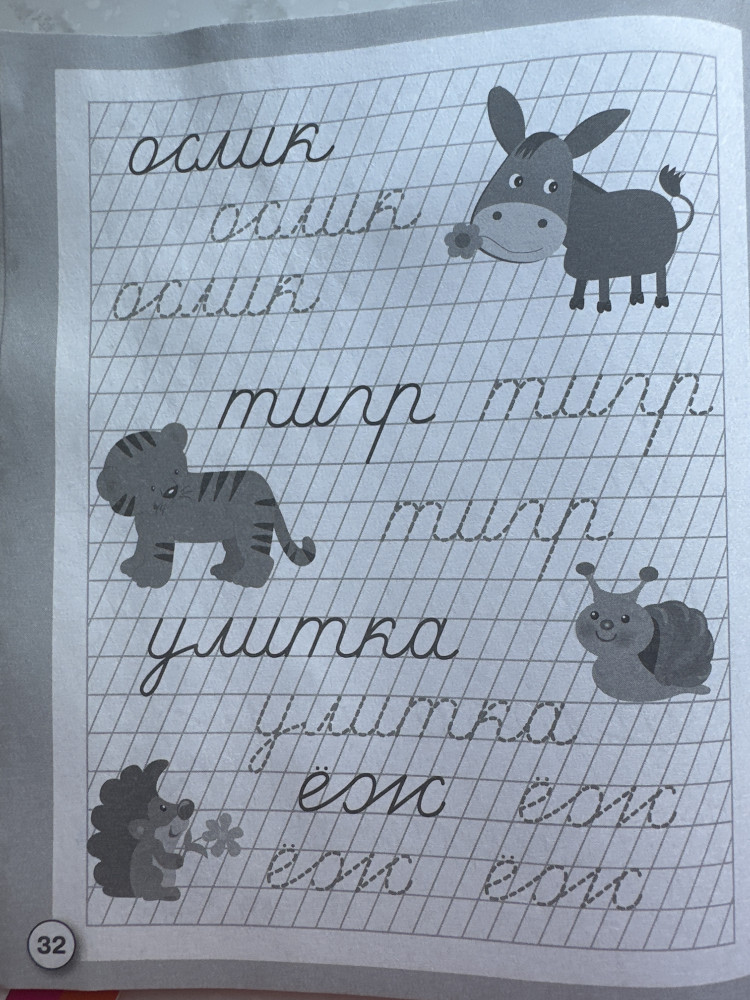 ослик
ослик
ослик
тигр тигр
тигр
улитка
улитка
ёж ёж
ёж ёж
32